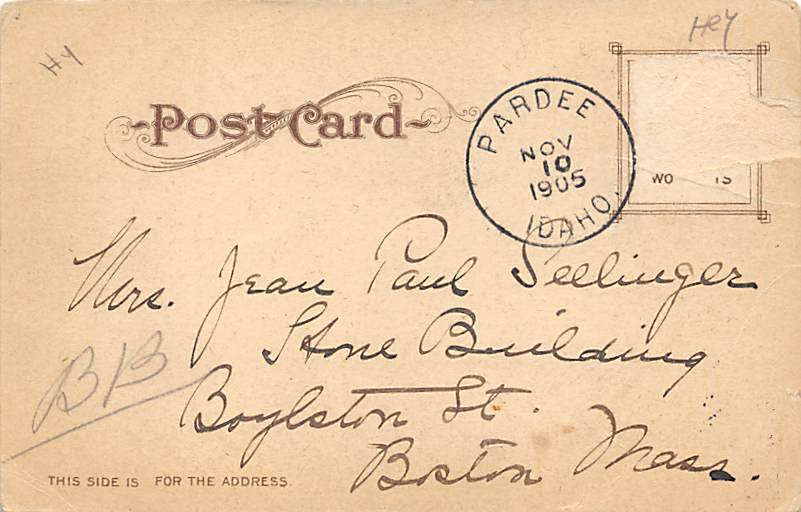 Hy
Hey
Post Card
PARDEE
NOV
10
1905
IDAHO.
WO IS
Mrs. Jean Paul Seelinger
Stone Building
Boylston St.
Boston Mass.
BB
THIS SIDE IS FOR THE ADDRESS.